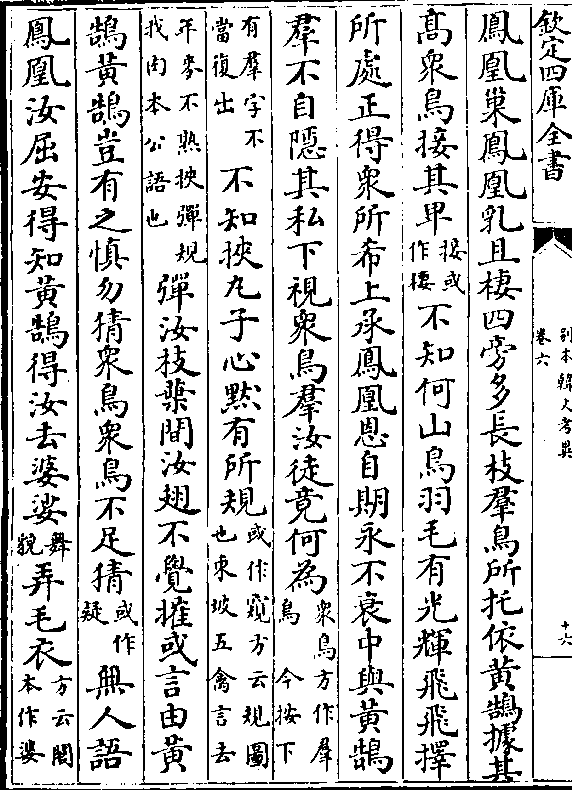 欽定四庫全書
別本韓文考異
卷六
十六
鳳凰巢鳳凰乳且棲四旁多長枝羣鳥所托依黃鵠據其
高衆鳥接其卑接或作棲不知何山鳥羽毛有光輝飛飛擇
所處正得衆所希上承鳳凰恩自期永不衰中與黃鵠
羣不自隱其私下視衆鳥羣汝徒竟何為衆鳥方作羣鳥今按下
有羣字不當復出不知挾丸子心黙有所規或作窺方云規圖也東坡五禽言去
年麥不熟挾彈規我肉本公語也彈汝枝葉間汝翅不覺摧或言由黃
鵠黃鵠豈有之慎勿猜衆鳥衆鳥不足猜或作疑無人語
鳳凰汝屈安得知黃鵠得汝去婆娑舞貌弄毛衣方云閣本作婆